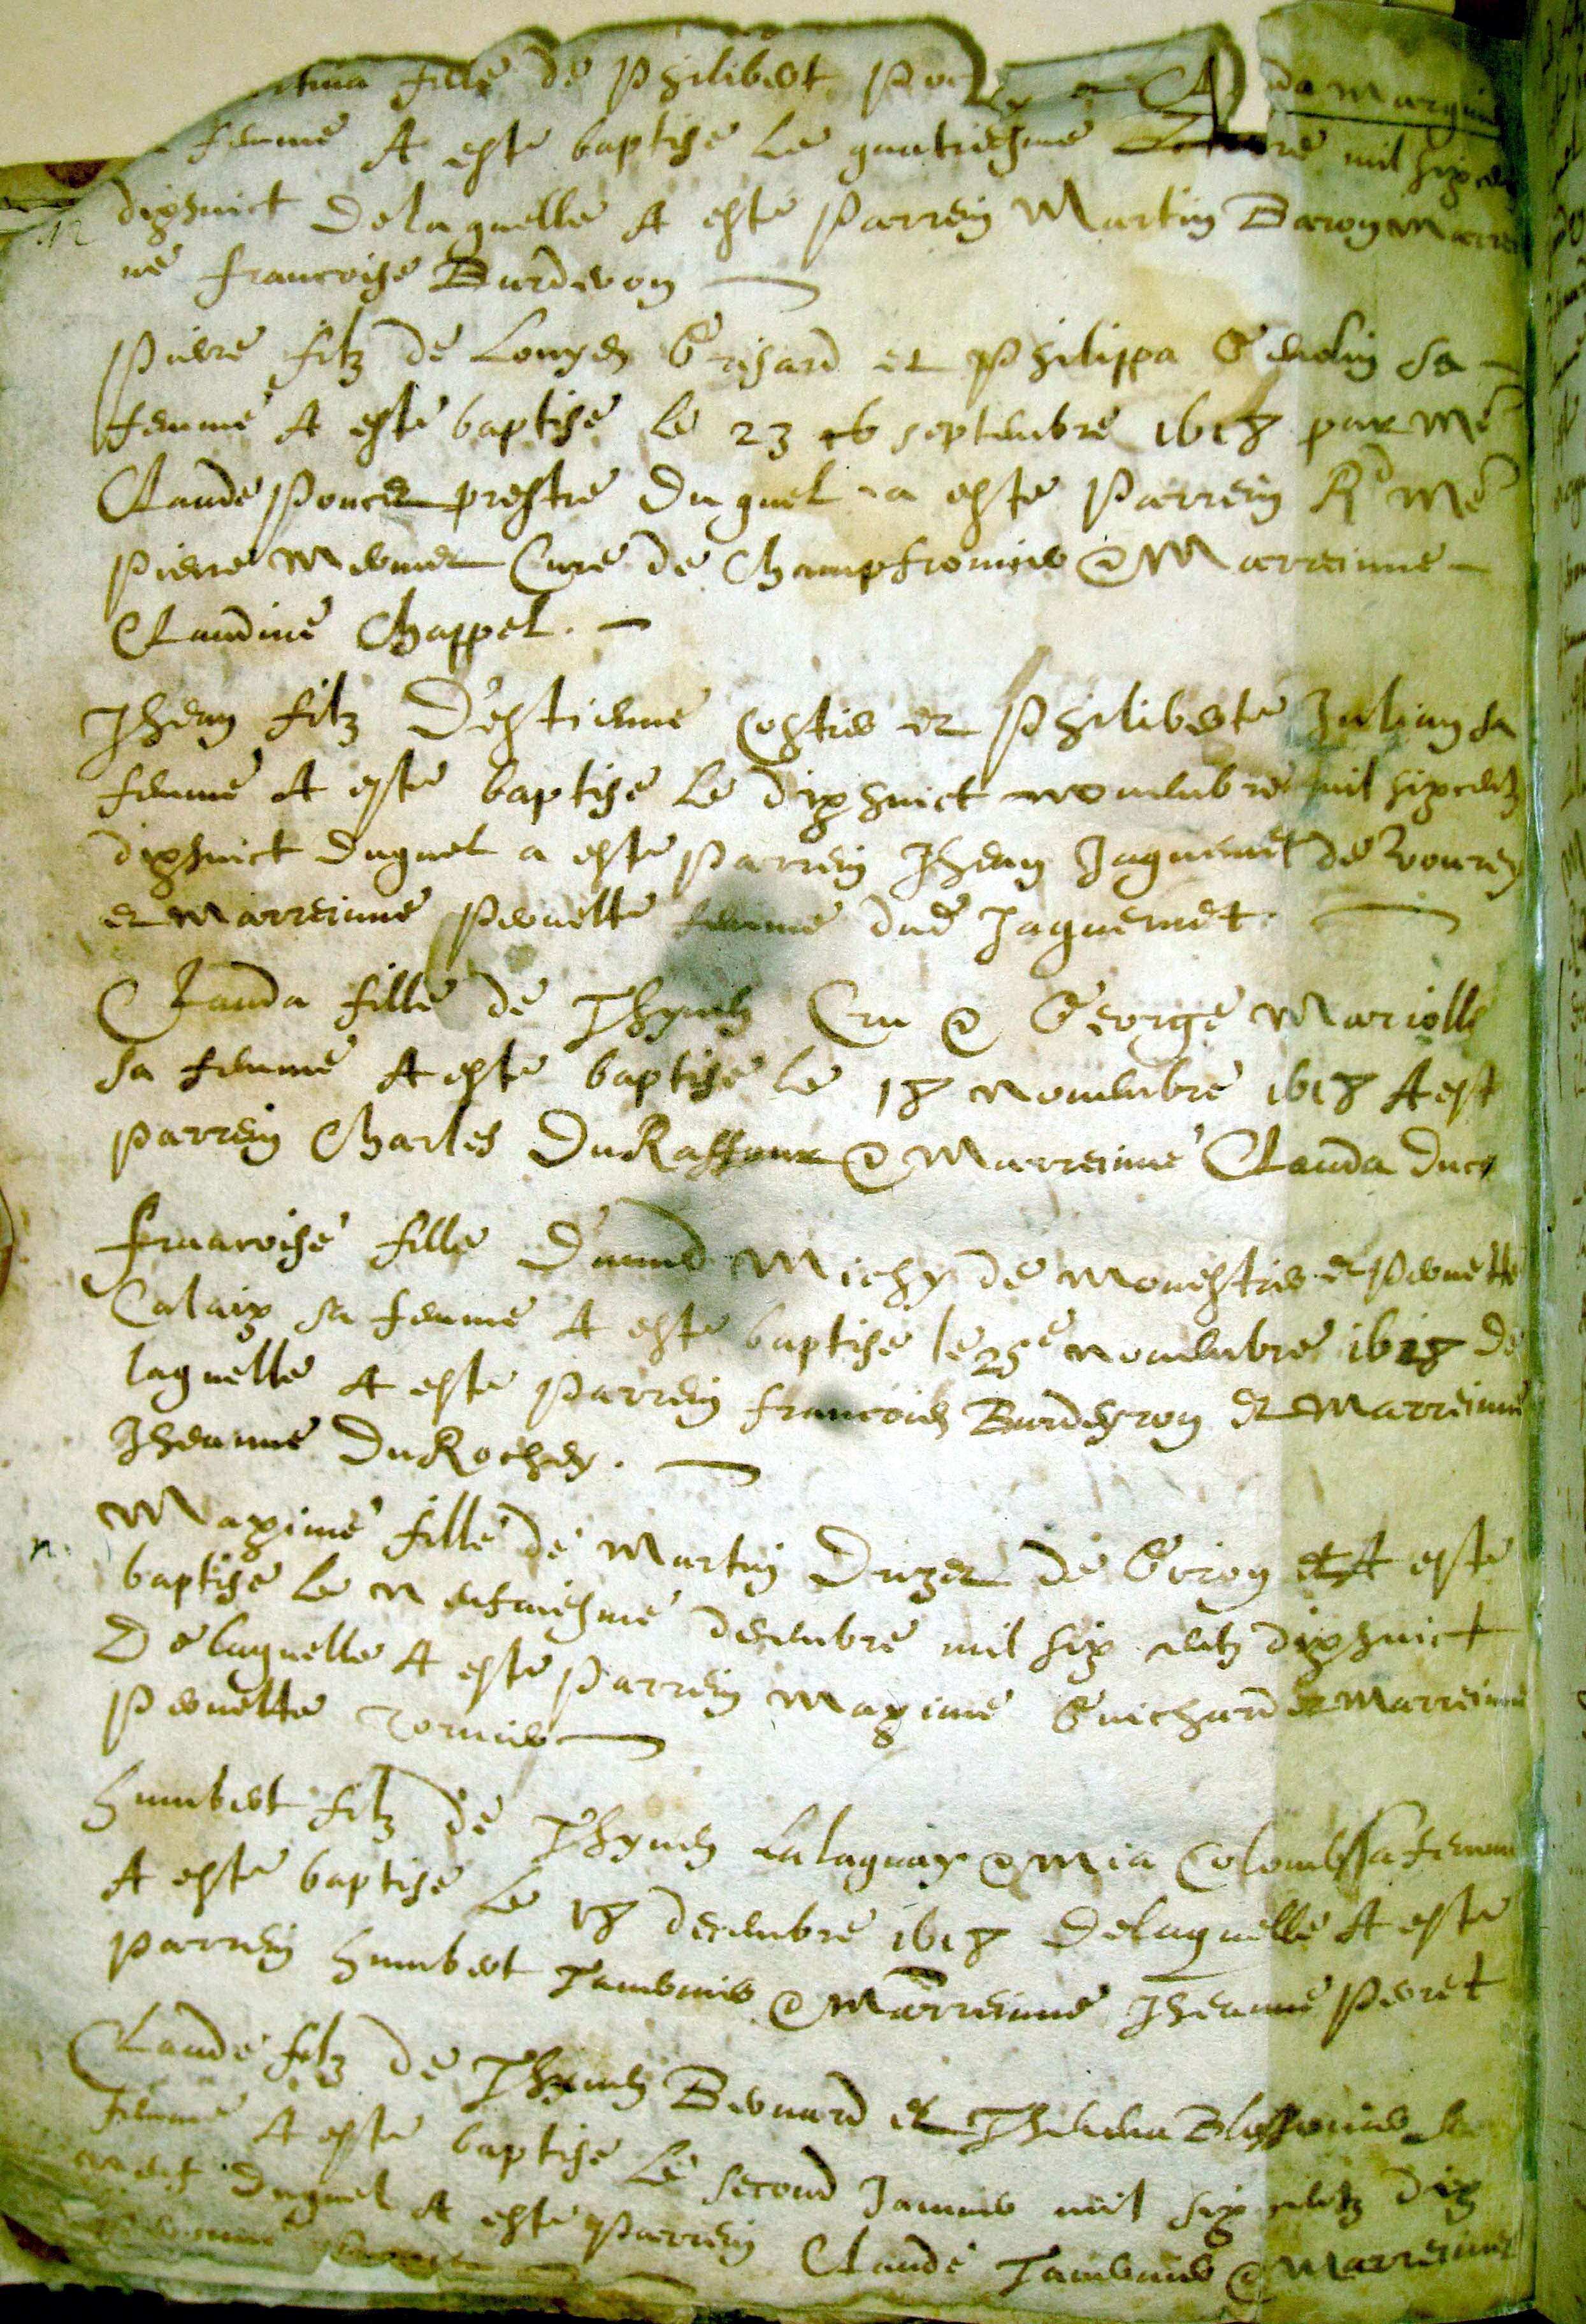 fille de Philibert
femme A este baptise le quatriesme mil six
dixhuict De laquelle A este Parrein Martin Baron Marrei
ne Francoise Burderon
Pierre filz de Louys Grisard et Philippa Genolin sa
femme A este baptise le 23 septembre 1618 par Mre
Claude Poncet prestre Duquel a este Parrein Rd Mre
Pierre Mermet Cure de Champfromier & Marreinne
Claudine Chappel.
Jhean filz D'estienne Costier et Philiberte Julian sa
femme A este baptise le dixhuict novembre mil six centz
dixhuict duquel a este Parrein Jhean Jaquemet de
et Marreinne Pernette femme dud Jaquemet.
Clauda fille de Thyven Cru & George Mariolle
sa femme A este baptise le 18 novembre 1618 A est
parrein Charles DuRaffour & Marreinne Clauda Duc
Francoise fille D'aime Michy de Monestier et Pernette
Calaix sa femme A este baptise le 25e novembre 1618 De
laquelle A este Parrein Francois Burdeyron et Marreinne
Jheanne DuRochey.
Maxime fille de Martin Druzet de Giron A este
n.
baptise le neufviesme decembre mil six centz dixhuict
De laquelle A este Parrein Maxime Guichard et Marreinne
Pernette Tornier
Humbert filz de Thyven Lalaguay & Mia Colomb sa femme
A este baptise le 18 decembre 1618 De laquelle A este
parrein Humbert Tavernier & Marreinne Jheanne Perret
Claude filz de Thyven Bernard et Thevena Blessonnier sa
femme A este baptise Le second Janvier mil six centz dix
neuf Duquel A este Parrein Claude Tavernier & Marreinne